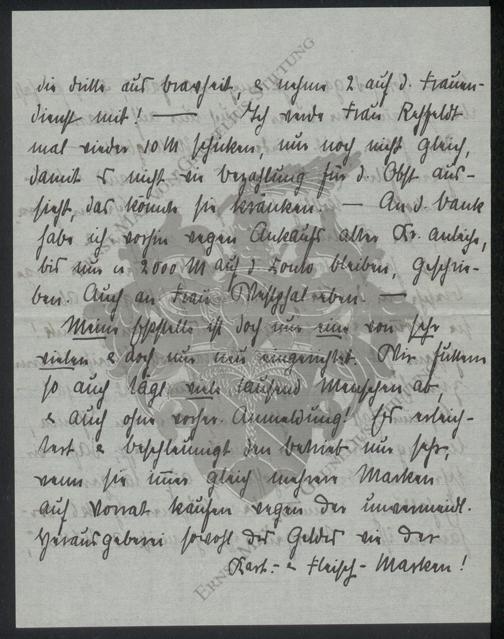 die dritte aus bravheit, & nehme 2 auf d. Frauen-
dienst mit! — Ich werde Frau Rehfeldt
mal wieder 10 M schicken, nur noch nicht gleich,
damit es nicht wie bezahlung für d. Obst aus-
sieht, das könnte sie kränken. — An d. bank
habe ich vorhin wegen Ankaufs alter Kr. anleihe,
bis nur n. 2000 M auf d. Conto bleiben, geschrie-
ben. Auch an Frau Westphal eben. —
Meine Essstelle ist doch nur eine von sehr
vielen & doch nur neu eingerichtet. Wir füttern
so auch tägl. viele tausend Menschen ab,
& auch ohne vorher. Anmeldung! Es erleich-
tert & beschleunigt den betrieb nur sehr,
wenn sie immer gleich mehrere Marken
auf Vorrat kaufen wegen der unvermeidl.
Herausgeberei sowohl des Geldes wie der
Kart.- & Fleisch-Marken!
ERNST
STIFTUNG